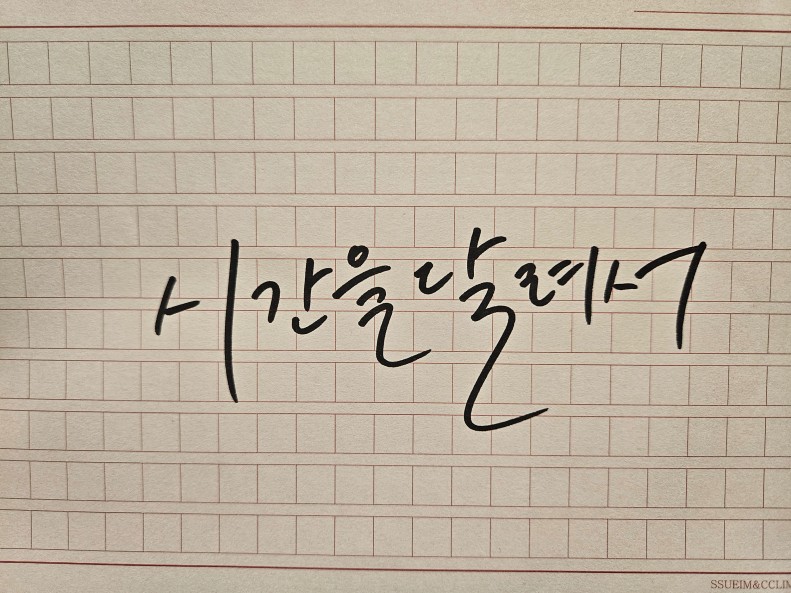 시간을 달려서
SSUEIM&CCLIM